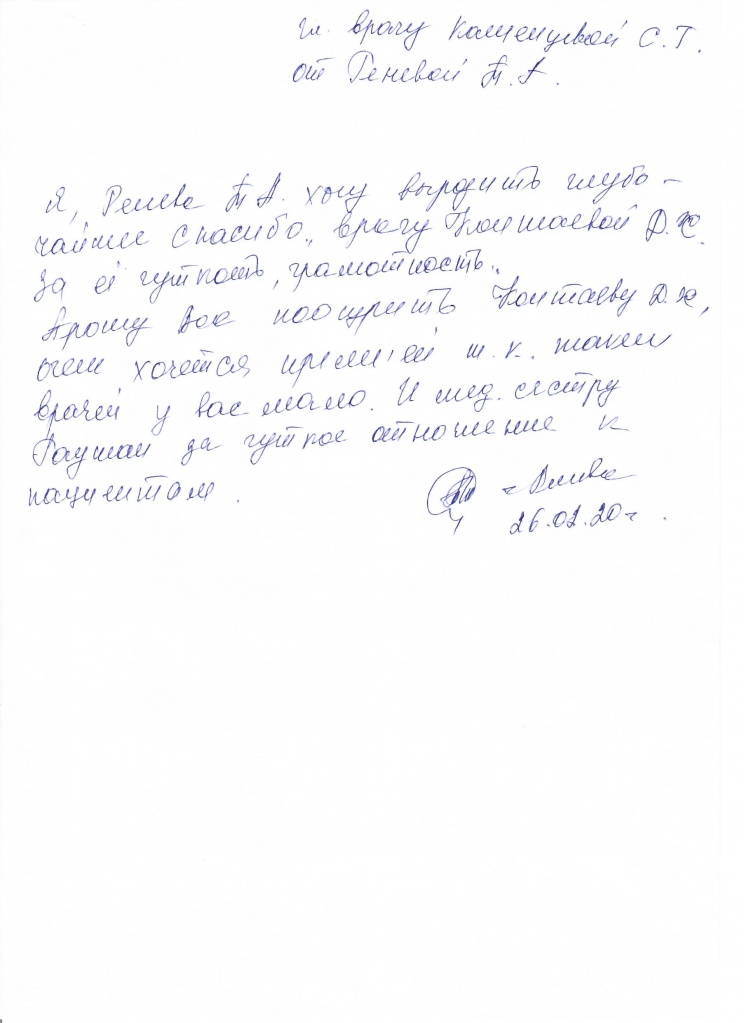 гл. врачу Каменцевой С.Т.
от Реневой Т.А.
Я, Ренева Т.А. хочу выразить глубо-
чайшее спасибо, врачу Контаевой Д.Ж.
За её чуткость, грамотность.
Прошу Вас поощрить Контаеву Д.Ж,
очень хочется премией т.к. таких
врачей у вас мало. И мед. сестру
Раушан за чуткое отношение к
пациентам.
Ренева
26.02.20г.